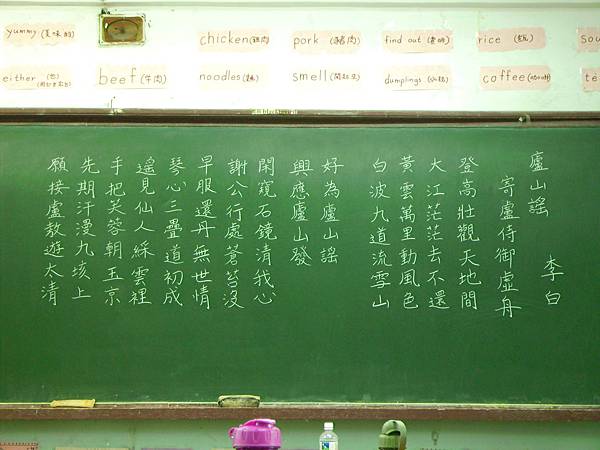 yummy (美味的)
chicken (雞肉)
pork (豬肉)
find out (查明)
rice (飯)
sou
either (也)
beef (牛肉)
noodles (麵)
smell (聞起來)
dumplings (水餃)
coffee (咖啡)
te
廬山謠 李白
寄盧侍御虛舟
登高壯觀天地間
大江茫茫去不還
黃雲萬里動風色
白波九道流雪山
好為廬山謠
興應廬山發
閑窺石鏡清我心
謝公行處蒼苔沒
早服還丹無世情
琴心三疊道初成
遙見仙人綵雲裡
手把芙蓉朝玉京
先期汗漫九垓上
願接盧敖遊太清